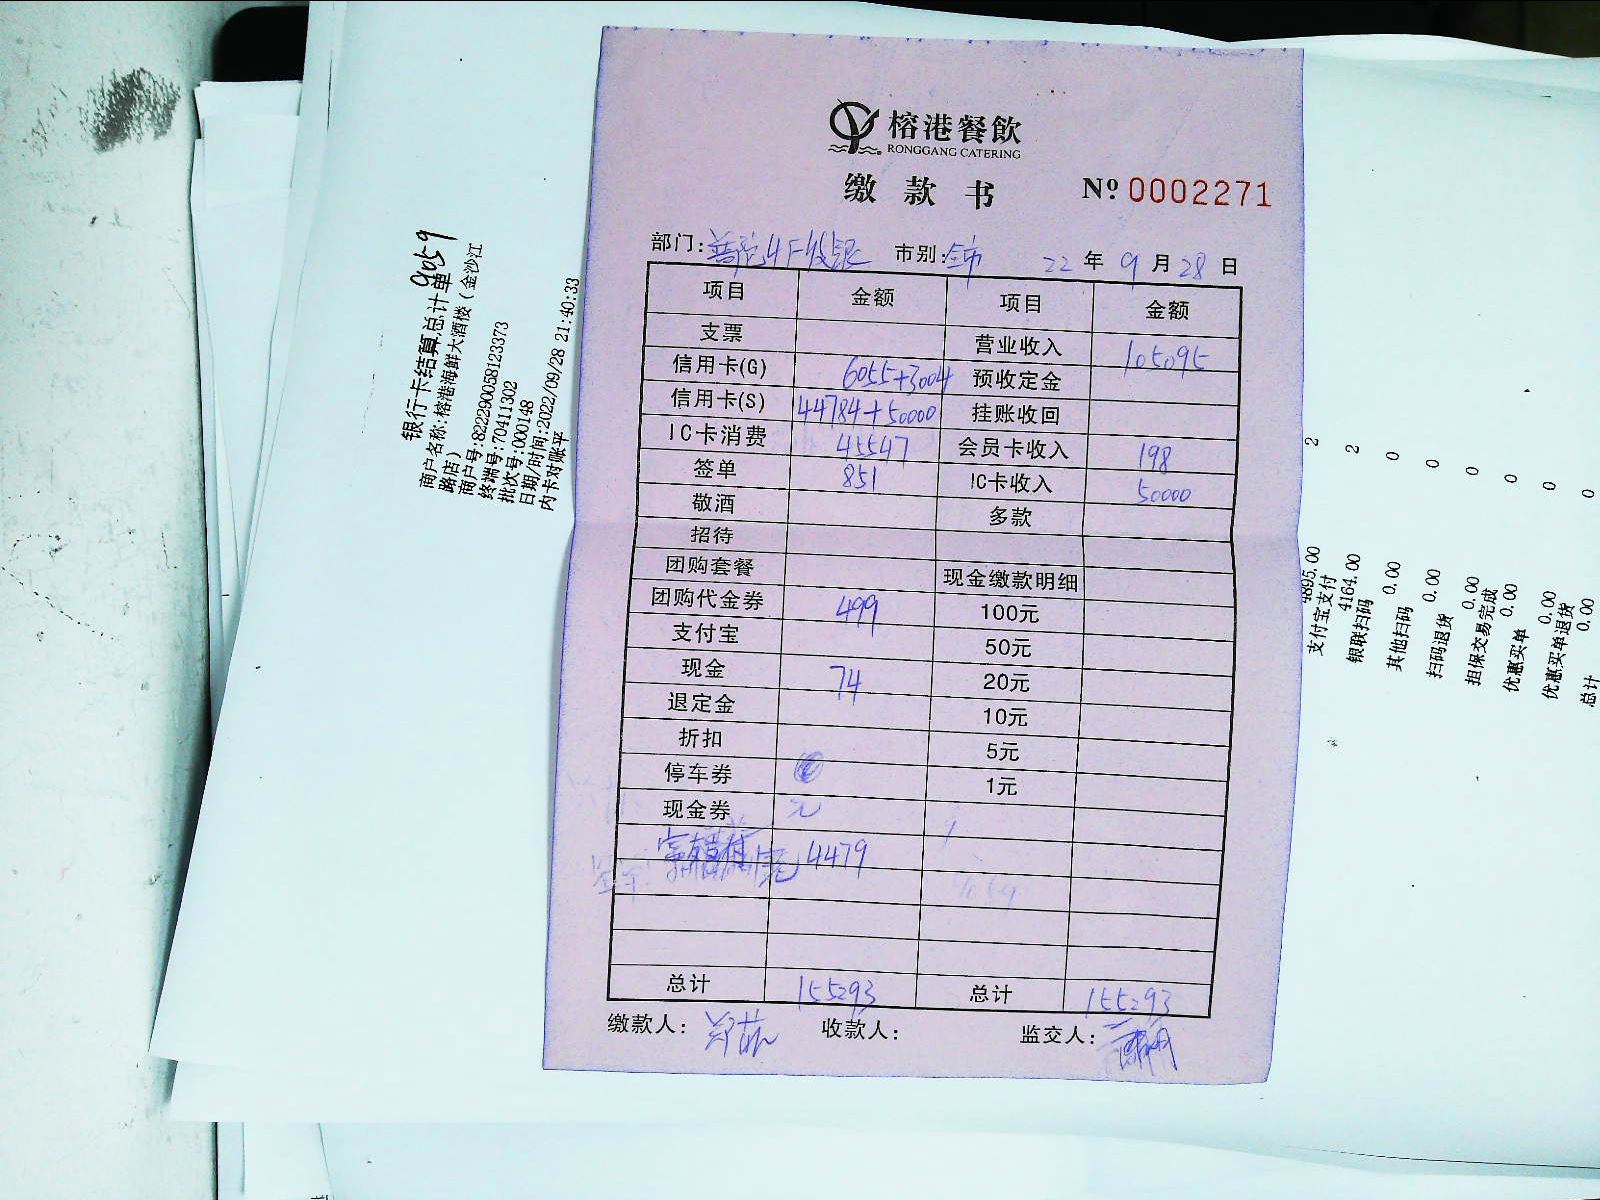 榕港餐飲
RONGGANG CATERING
缴款书 Nº 0002271
部门:普陀4F收银 市别:全市 22年9月28日
项目 金额 项目 金额
支票 营业收入 105095
信用卡(G) 6055+3004 预收定金
信用卡(S) 44784+50000 挂账收回
IC卡消费 45547 会员卡收入 198
签单 851 IC卡收入 50000
敬酒 多款
招待
团购套餐 现金缴款明细
团购代金券 499 100元
支付宝 50元
现金 74 20元
退定金 10元
折扣 5元
停车券 1元
现金券 元
4479
总计 155293 总计 155293
缴款人: 收款人: 监交人:
9059
银行卡结算总计单
商户名称:榕港海鲜大酒楼(金沙江
路店)
商户号:822290058123373
终端号:70411302
批次号:000148
日期/时间:2022/09/28 21:40:33
内卡对账平
2 4895.00
支付宝支付
2 4164.00
银联扫码
0 0.00
其他扫码
0 0.00
扫码退货
0 0.00
担保交易完成
0 0.00
优惠买单
0 0.00
优惠买单退货
0 0.00
总计